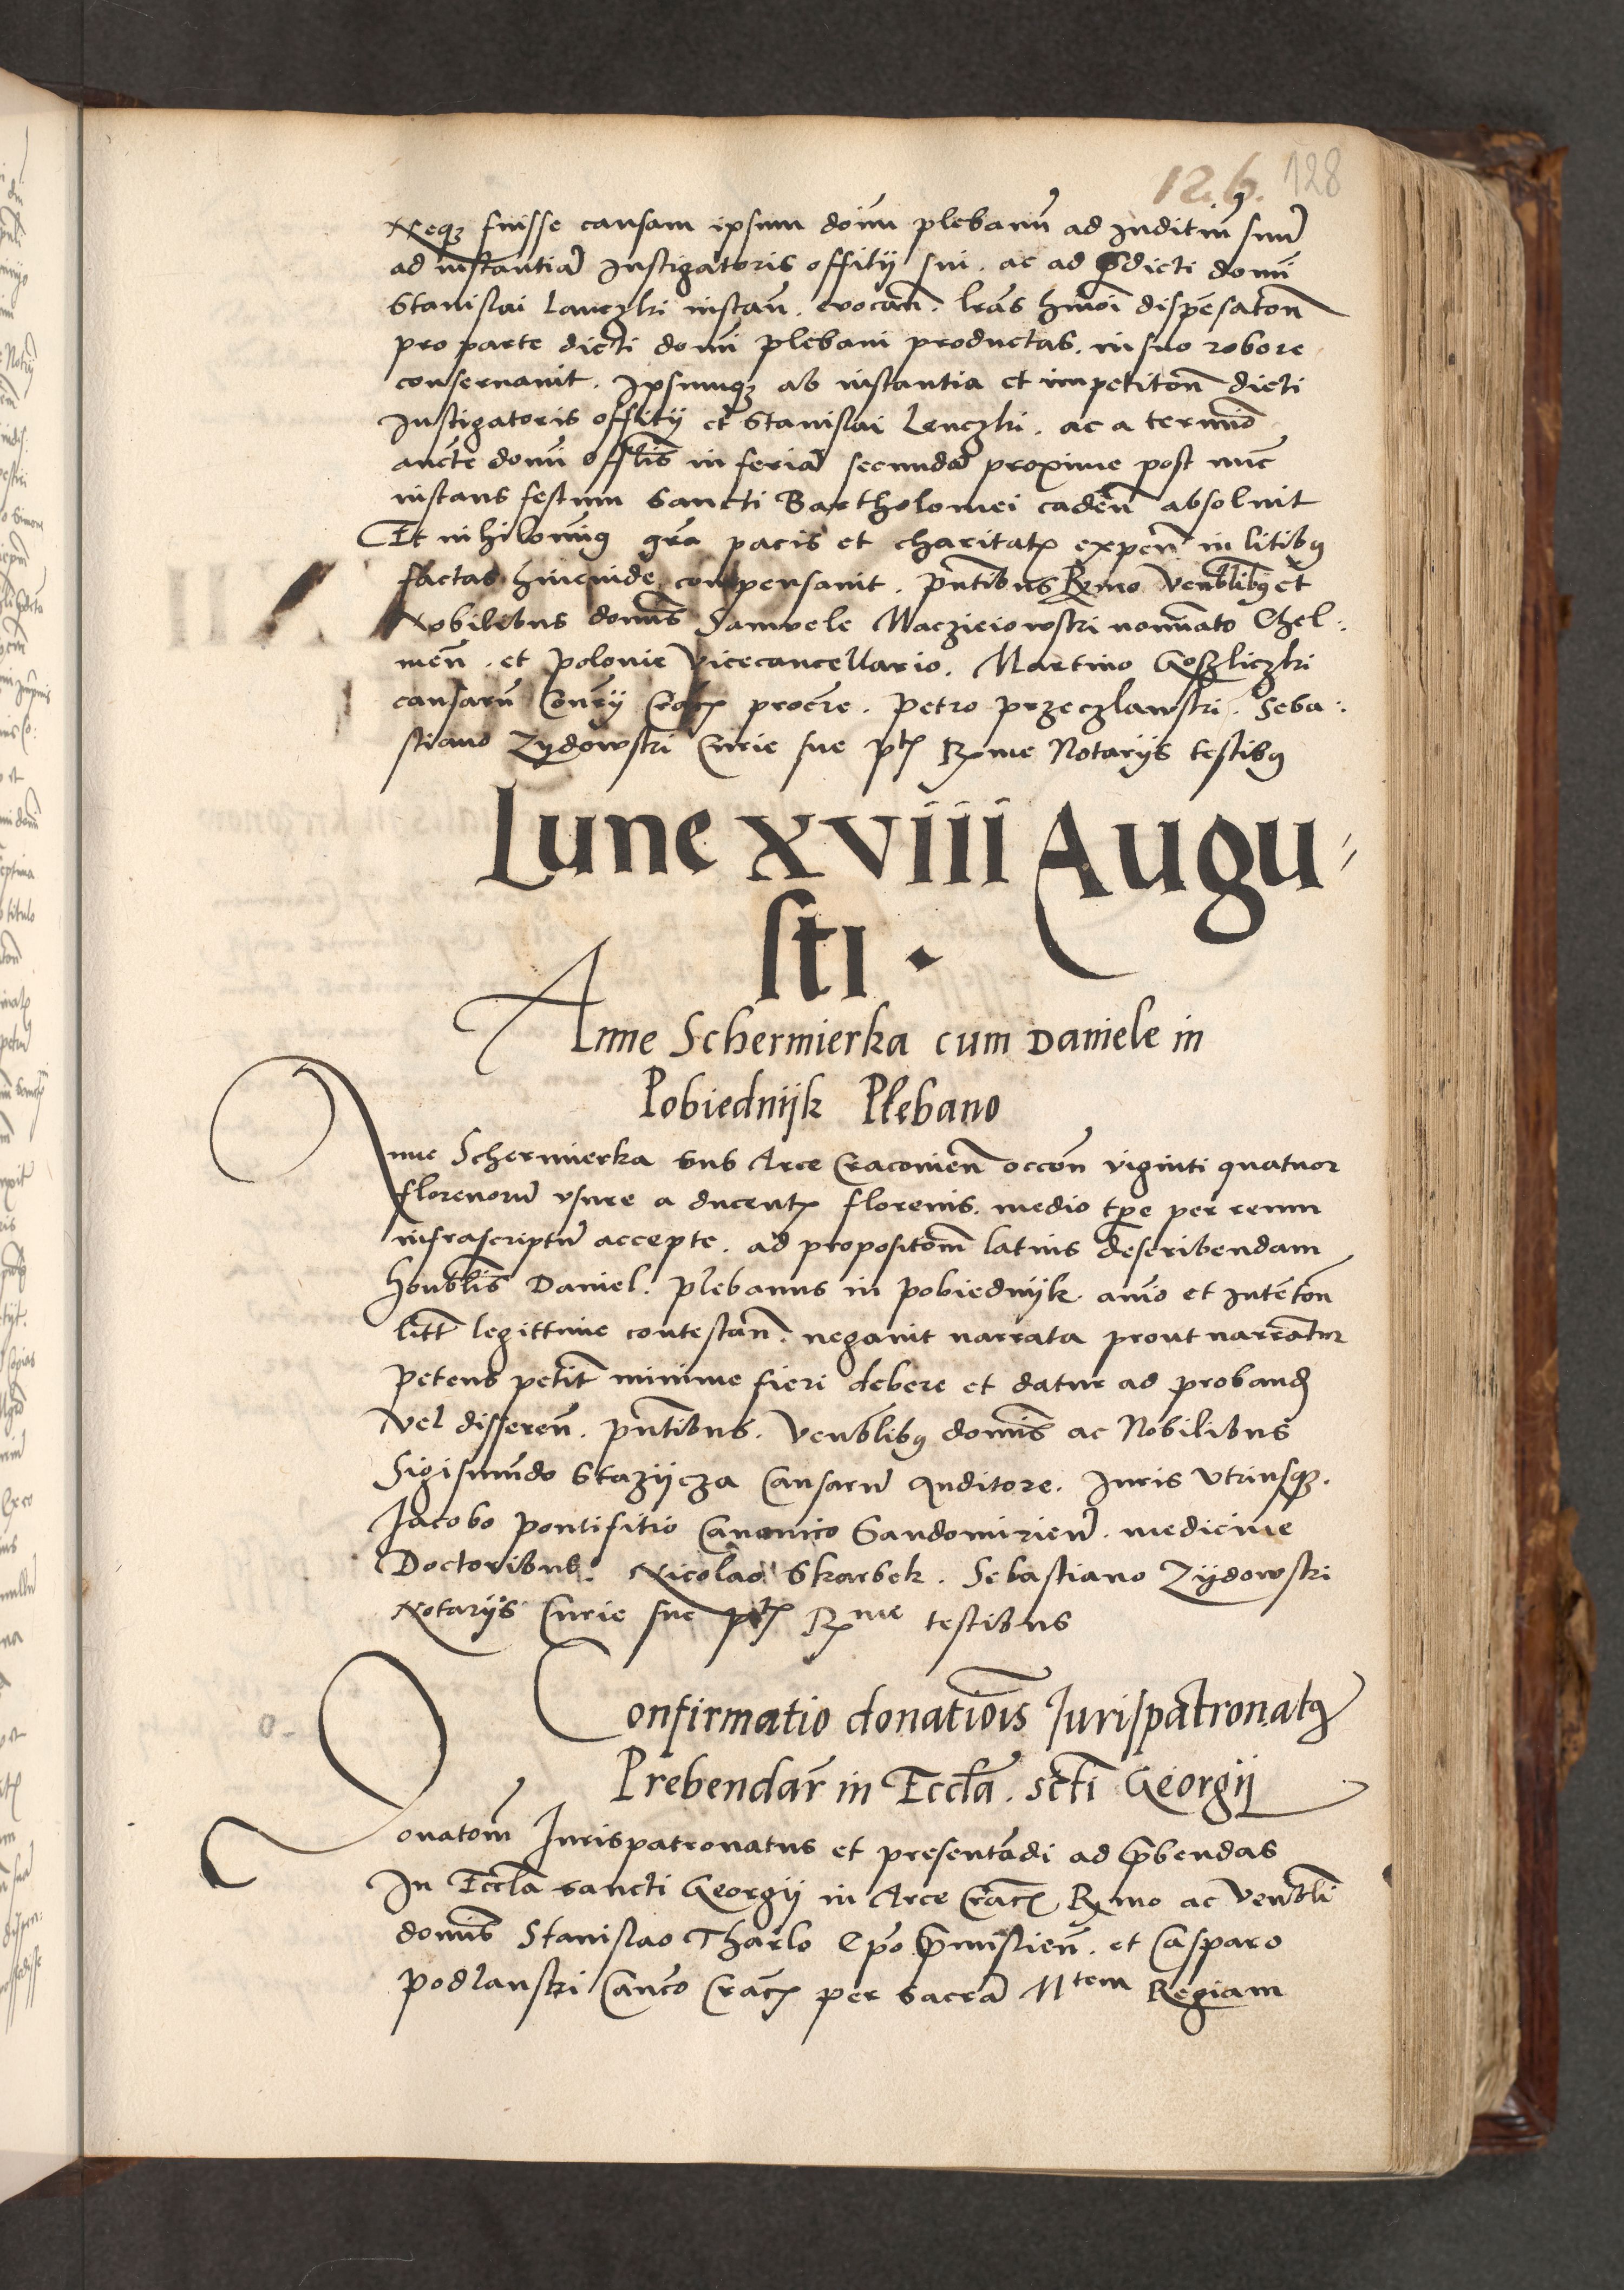 126. 128
Neqꝫ fuisse causam ipsum doim̄ plebanū ad Juditiū suū
ad instantiā Instigatoris offitij sui. ac ad p̄dicti domi
Stanislai Lanczki instan̄. evocan̄. lrās hm̄oi dispēsaton̄
pro parte dicti domi plebani productas. in suo robore
conseruauit. Ipsumqꝫ ab instantia et impetiton̄ dicti
Instigatoris offitij et Stanislai Lenczki. ac a termīo
an̄cte domi offlis in feriā secundā proxime post nūc
instans festum Sancti Bartholomei caden̄ absoluit
Et nihilominꝰ grā pacis et charitatꝭ expen̄ in litibꝰ
factas hincinde compensauit. pn̄tibus Rx̄mo Venblibꝰ et
Nobilibus domīs Samuele Maczieiowski nomīato Chel:
men̄. et Polonie Vicecancellario. Martino Goszliczki
causarū Con̄rij Crac̄ꝭ procr̄e. Petro Przeczlawski. Seba:
stiano Zydowski Curie sue ptꝭ Rx̄me Notarijs testibꝰ
Lune xviii Augu,
sti.
Anne Schermierka cum Daniele in
Pobiednijk Plebano
Anne Schermierka sub Arce Cracouien̄ occōn̄ viginti quatuor
florenorū vsure a ducentꝭ florenis. medio tp̄e per reum
infrascriptū accepte. ad propositōm̄ latius describendam
honblis Daniel. Plebanus in Pobiednijk animo et intētōn̄
litt̄ legittime contestan̄. negauit narrata prout narrātur
petens petit̄ minime fieri debere et datur ad probandꝭ
vel differen̄. pn̄tibus. Venblibꝰ domīs ac Nobilibus
Sigismūdo Stazijcza Causarū Auditore. Juris Vtriusqꝫ.
Jacobo Pontifitio Canonico Sandomirien̄. medicine
Doctoribus. Nicolao Skarbek. Sebastiano Zijdowski
Notarijs Curie sue ptꝭ Rx̄me testibus
Confirmatio donatiōis Jurispatronatꝰ
Prebendar̄ in Eccl̄a. sct̄i Georgij
Donatōm̄ Jurispatronatus et presentādi ad p̄bendas
In Eccl̄a sancti Georgij in Arce Crac̄ꝭ Rx̄mo ac Venbli
domīs Stanislao Tharlo Ep̄o p̄mislien̄. et Casparo
Podlanski Canco Crac̄ꝭ per sacrā Mtem Regiam